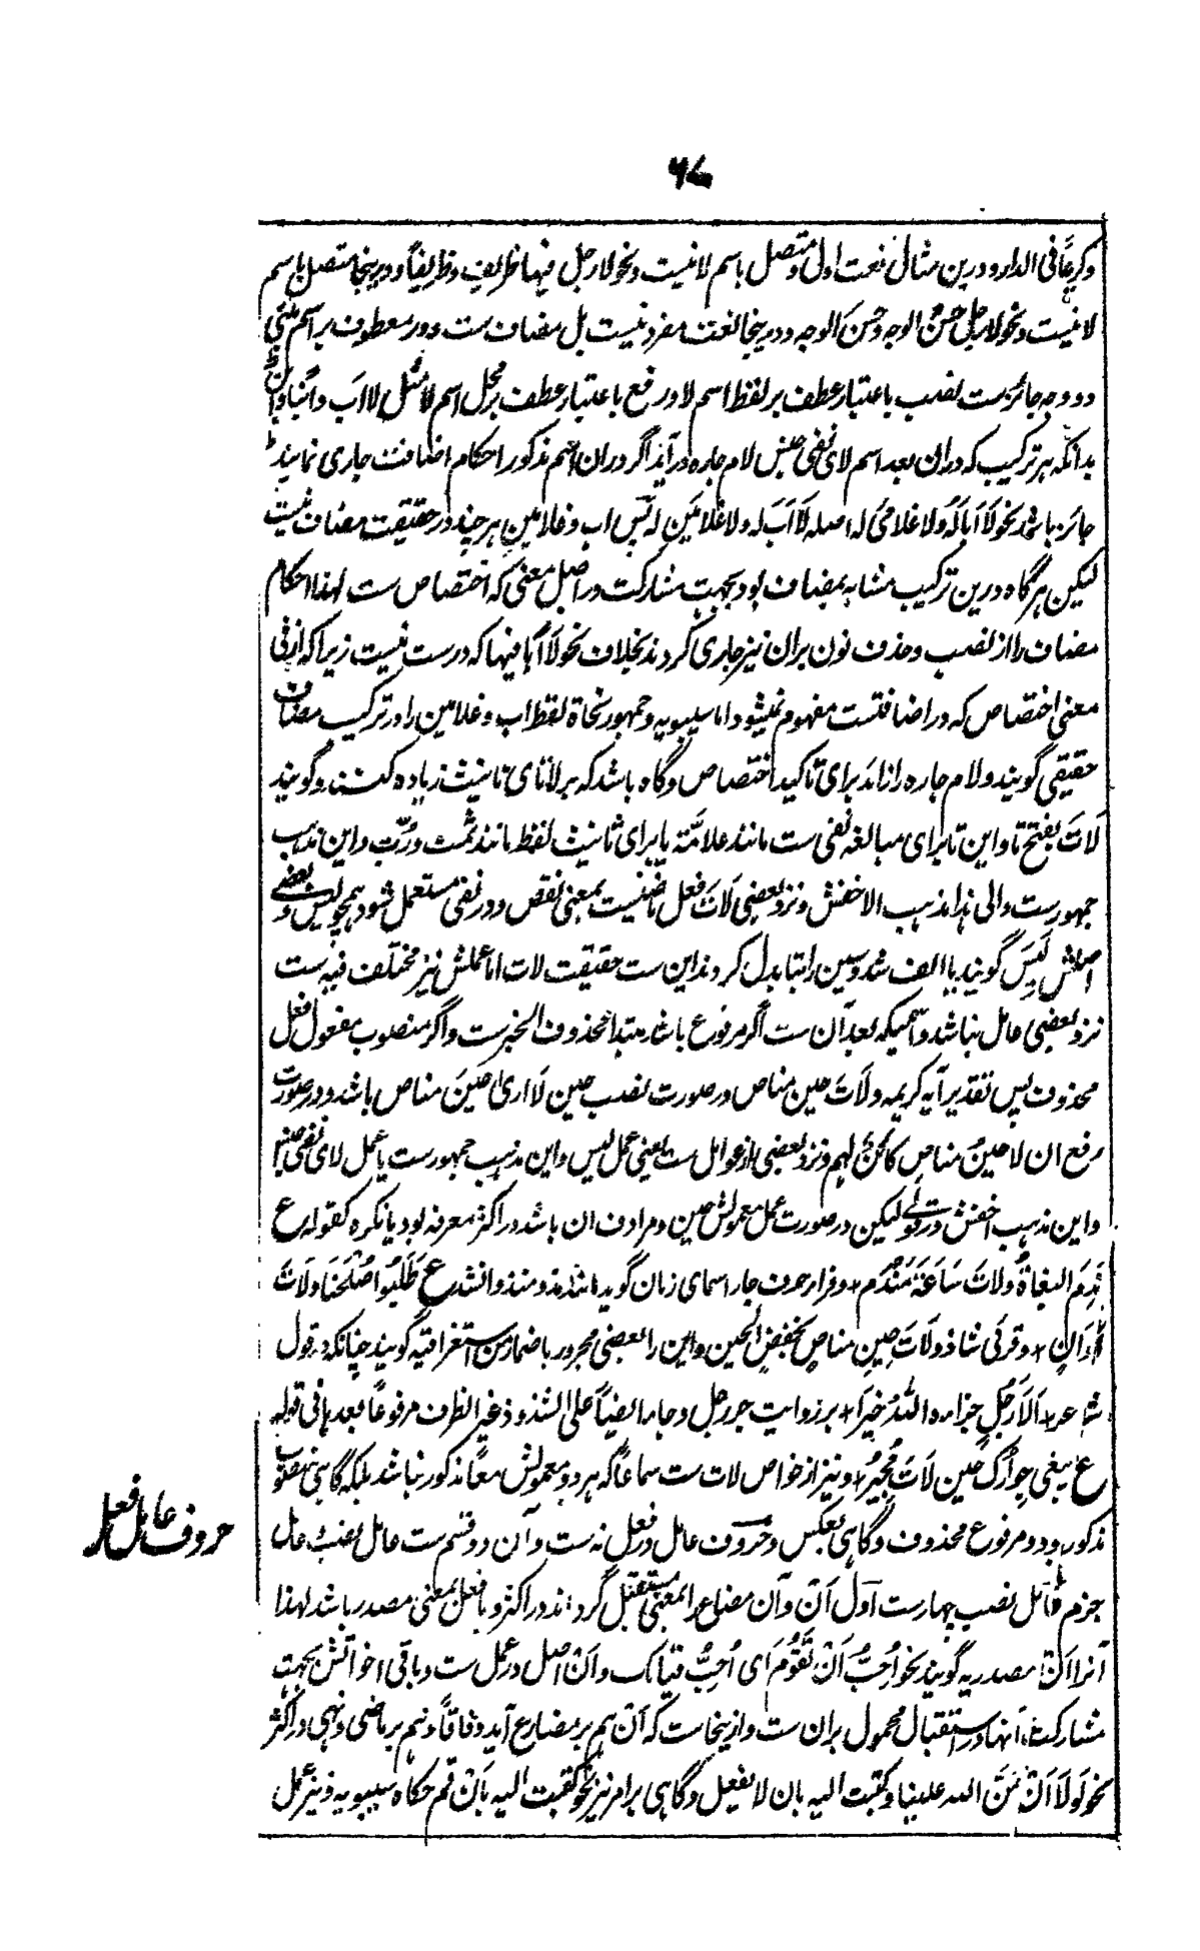 ۶۷
وکریمًا فی الدار و درین مثال نعت اولی متصل باسم لا نیست و نحو لا رجل فیها ظریف و ظریفًا و درینجا متصل باسم
لا نیست و نحو لا رجل حسنُ الوجه و حسنَ الوجه و درینجا نعت مفرد نیست بل مضاف ست و در معطوف بر اسم مبنی
دو وجه جائز ست نصب باعتبار عطف بر لفظ اسم لا و رفع باعتبار عطف بر محل اسم لا مثل لا اَبَ و ابنًا و ابنٌ
بدانکه هر ترکیب که دران بعد اسم لای نفی جنس لام جاره در آید اگر دران اسم مذکور احکام اضافت جاری نمایند
جائز باشد نحو لَا اَبَا لَهُ ولا غلامَی له اصله لَا اَبَ له ولا غلامَینِ لَه پس اب و غلامینِ هر چند در حقیقت مضاف نیست
لیکن هر گاه درین ترکیب مشابه بمضاف بود بجهت مشارکت در اصل معنی که اختصاص ست لهذا احکام
مضاف را از نصب و حذف نون بران نیز جاری کردند بخلاف نحو لَا اَبًا فیها که درست نیست زیرا که از فی
معنی اختصاص که در اضافتست مفهوم نمیشود اما سیبویه و جمهور نحاة لفظ اب و غلامین را در ترکیب مضاف
حقیقی گویند و لام جاره را زائد برای تاکید اختصاص و گاه باشد که بر لا تای تانیث زیاده کنند و گویند
لَاتَ بفتح تا و این تا برای مبالغه نفی ست مانند علامّة یا برای تانیث لفظ مانند ثمت و ربّت و این مذهب
جمهور ست والی هذا مذهب الاخفش و نزد بعضی لَاتَ فعل ماضیست بمعنی نقص و در نفی مستعمل شود همچو لیس و بعضے
اصلش لَیِسَ گویند یا الف شد و سین را بتا بدل کردند این ست حقیقت لات اما عملش نیز مختلف فیه ست
نزد بعضی عامل نباشد و اسمیکه بعد آن ست اگر مرفوع باشد مبتدا محذوف الخبر ست و اگر منصوب مفعول فعل
محذوف پس تقدیر آیه کریمه ولَاتَ حین مناص در صورت نصب حین لَا اری حینَ مناص باشد و در صورت
رفع ان لا حینُ مناص کائنٌ لهم و نزد بعضی از عوامل ست یعنی عمل لیس و این مذهب جمهور ست یا عمل لای نفی جنس
و این مذهب اخفش در قولے لیکن در صورت عمل معمولش حین و مرادف ان باشد در اکثر معرفه بود یا نکره کقوله ع
نَدِمَ البغاةُ ولاتَ سَاعَةَ مَنْدَمِ * و فرا حرف جار اسمای زمان گوید مانند مذ و منذ و انشد ع طَلَبُوا صُلْحَنَا ولَاتَ
اَوَانٍ * و قرئی شاذ ولَاتَ حینِ مناصٍ بخفض الحین و این را بعضی مجرور باضمار من استغراقیه گویند چنانکه در قول
شاعر * اَلَا رَجُلٍ جزاه اللهُ خیرًا * بر روایت جر رجل و جاء ایضًا علی الشذوذ غیر الظرف مرفوعًا بعدها فی قوله
ع یبغی جوارک حین لَاتَ مُجیرُ * و نیز از خواص لات ست سماعًا که هر دو معمولش معًا مذکور نباشد بلکه گاهی منصوب
مذکور بود و مرفوع محذوف و گاهی بعکس و حروف عامل در فعل نه ست و آن دو قسم ست عامل نصب و عامل
جزم عامل نصب چهار ست اول اَنْ و آن مضارع را بمعنی مستقبل گرداند در اکثر و با فعل بمعنی مصدر باشد لهذا
آنرا اَنْ مصدریه گویند نحو اُحِبُّ اَنْ تَقُومَ ای اُحِبُّ قیامک و اَنْ اصل در عمل ست و باقی اخواتش بجهت
مشارکت آنها در استقبال محمول بران ست و ازینجاست که اَنْ هم بر مضارع آید وفاقًا و هم بر ماضی و نهی در اکثر
نحو لَولَا اَنْ مَنَّ الله علینا و کتبت الیه بان لا تفعل و گاهی بر امر نیز نحو کتبت الیه بَاَنْ قم حکاه سیبویه و نیز عمل
حروف عامل فعل